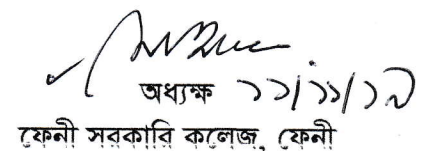 অধ্যক্ষ ১১/১১/১৯
ফেনী সরকারি কলেজ, ফেনী